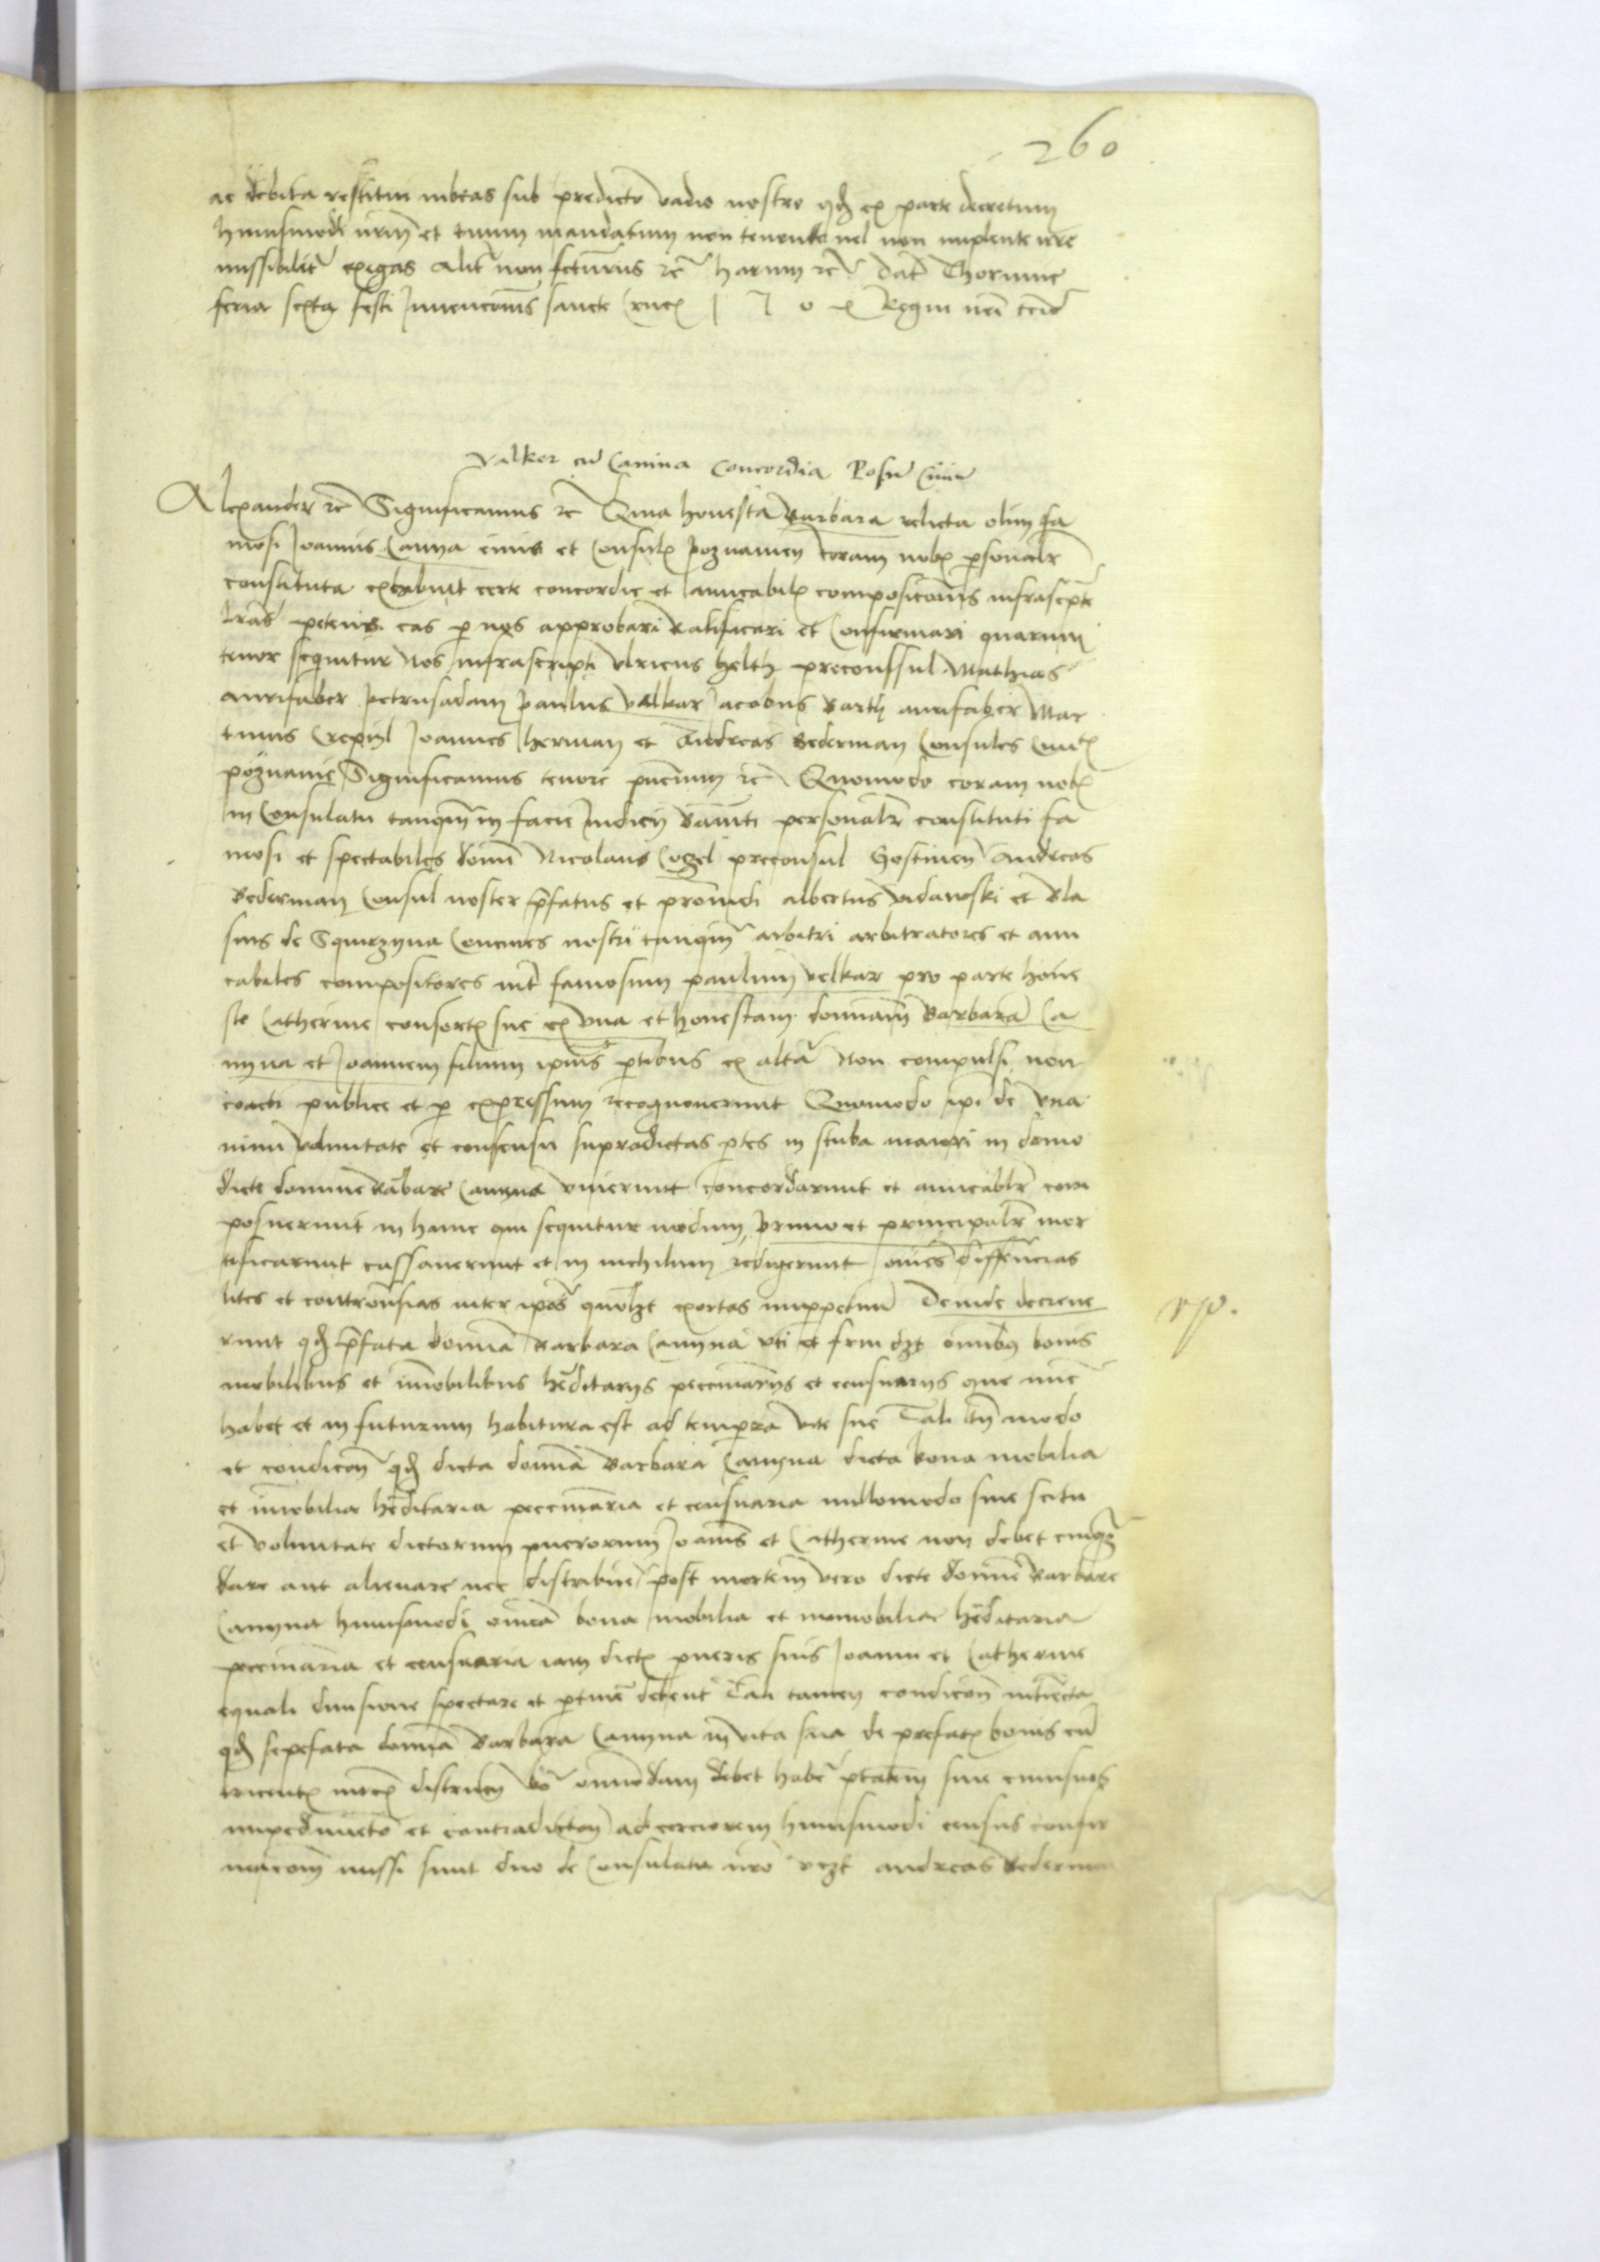 260
ac debita restitui iubeas sub predicto vadio nostro qd ex parte decretum
huiusmodi nrm et tuum mandatum non tenente vel non implente irre
missibilit exigas Alit non fcturus rc harum rc dat Thorunie
feria sexta festi Invencionis sancte Crucis Regni nri
Valker cu Camina Concordia Posn
Alexander rc Significamus rc Quia honesta Barbara relicta olim fa
mosi Joannis Camyna civis et Consulis Poznanien coram nobis personalr
constituta exhibuit certe concordie et amicabilis composicionis infrascripte
lras petens eas per nos approbari ratificari et Confirmari quarum
tenor sequitur Nos infrascripti Ulricus helth preconssul Mathias
aurifaber petrus adam paulus valkar Jacobus Barth aurifaber Mar
tinus Joannes herman et Andreas Bederman Consules
poznanie Significamus tenore pncium rc Quomodo coram nobis
in Consulatu tanqm in facie Iudicii personalr constituti fa
mosi et spectabiles domi Nicolaus Cogel preconsul Gostinen Andreas
Bederman Consul noster pfatus et prouidi albertus vidawski et Bla
sius de Squirzyna Concives nostri tanqm arbitri arbitratores et ami
cabiles compositores int famosum paulum velkar pro parte hone
ste Catherine consortis sue ex vna et honestam dominam Barbaram Ca
myna et Joannem filium ipius ptibus ex altera Non compulsi non
coacti publice et p expressum recognouerunt Quomodo ipi de vna
nimi voluntate et consensu supradictas ptes in stuba maiori in domo
dicte domine Barbare Camyna vnierunt concordarunt et amicablr com
posuerunt in hunc qui sequitur modum, primo et principalr mor
tificarunt cassauerunt et in nichilum redigerunt omes differencias
lites et controusias inter ipos exortas imppetuum Deinde decreue
runt qd pfata domina Barbara Camyna vti et frui omibus bonis
mobilibus et imobilibus hereditarys pecuniarys et censuarys que nunc
habet et in futurum habitura est ad tempora vite sue Tali tn modo
et condicon qd dicta domina Barbara Camyna dicta bona mobilia
et imobilia hereditaria pecuniaria et censuaria nullomodo sine scitu
et voluntate dictorum puerorum Joannis et Catherine non debet cuiq
dare aut alienare nec distribuere post mortem vero dicte domine Barbare
Camyna huiusmodi omia bona mobilia et immobilia hereditaria
pecuniaria et censuaria iam dictis pueris suis Joanni et Catherine
equali diuisione spectare et ptinere debent Tali tamen condicon
qd sepefata domina Barbara Camyna in vita sua de prefatis bonis cu
omnimodam debet habere ptatem sine cuiusuis
impedimento et contradiction ad cerciorem huiusmodi census confir
macom missi sunt duo de Consulatu nro vzt andreas Bederman